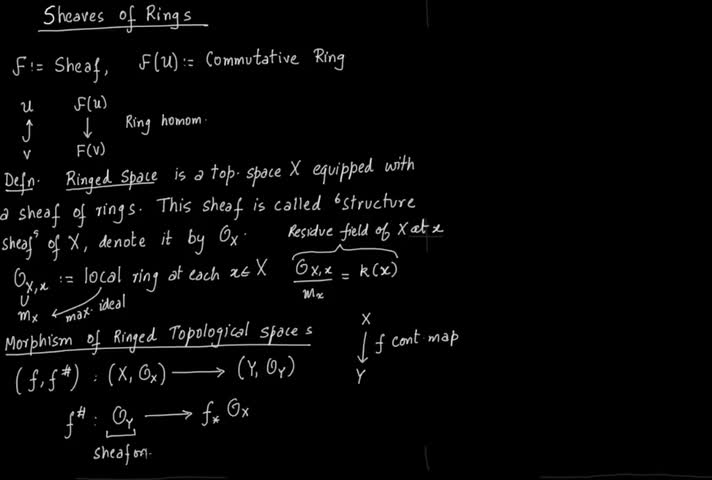 Sheaves of Rings
F := Sheaf, F(U) := Commutative Ring
U F(U)
↑ ↓ Ring homom.
V F(V)
Defn. Ringed Space is a top. space X equipped with
a sheaf of rings. This sheaf is called "structure
sheaf" of X, denote it by O_X.
Residue field of X at x
O_{X,x} := local ring at each x ∈ X O_{X,x}/m_x = k(x)
∪
m_x ← max. ideal
Morphism of Ringed Topological spaces
X
↓ f cont map
Y
(f, f^#) : (X, O_X) → (Y, O_Y)
f^# : O_Y → f_* O_X
sheaf on